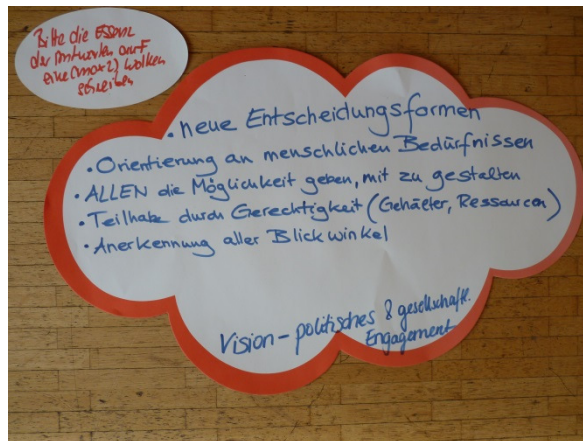 Bitte die Essenz
der Antworten auf
eine (max 2) Wolken
schreiben
• neue Entscheidungsformen
• Orientierung an menschlichen Bedürfnissen
• ALLEN die Möglichkeit geben, mit zu gestalten
• Teilhabe durch Gerechtigkeit (Gehälter, Ressourcen)
• Anerkennung aller Blickwinkel
Vision - politisches & gesellschaftl.
Engagement